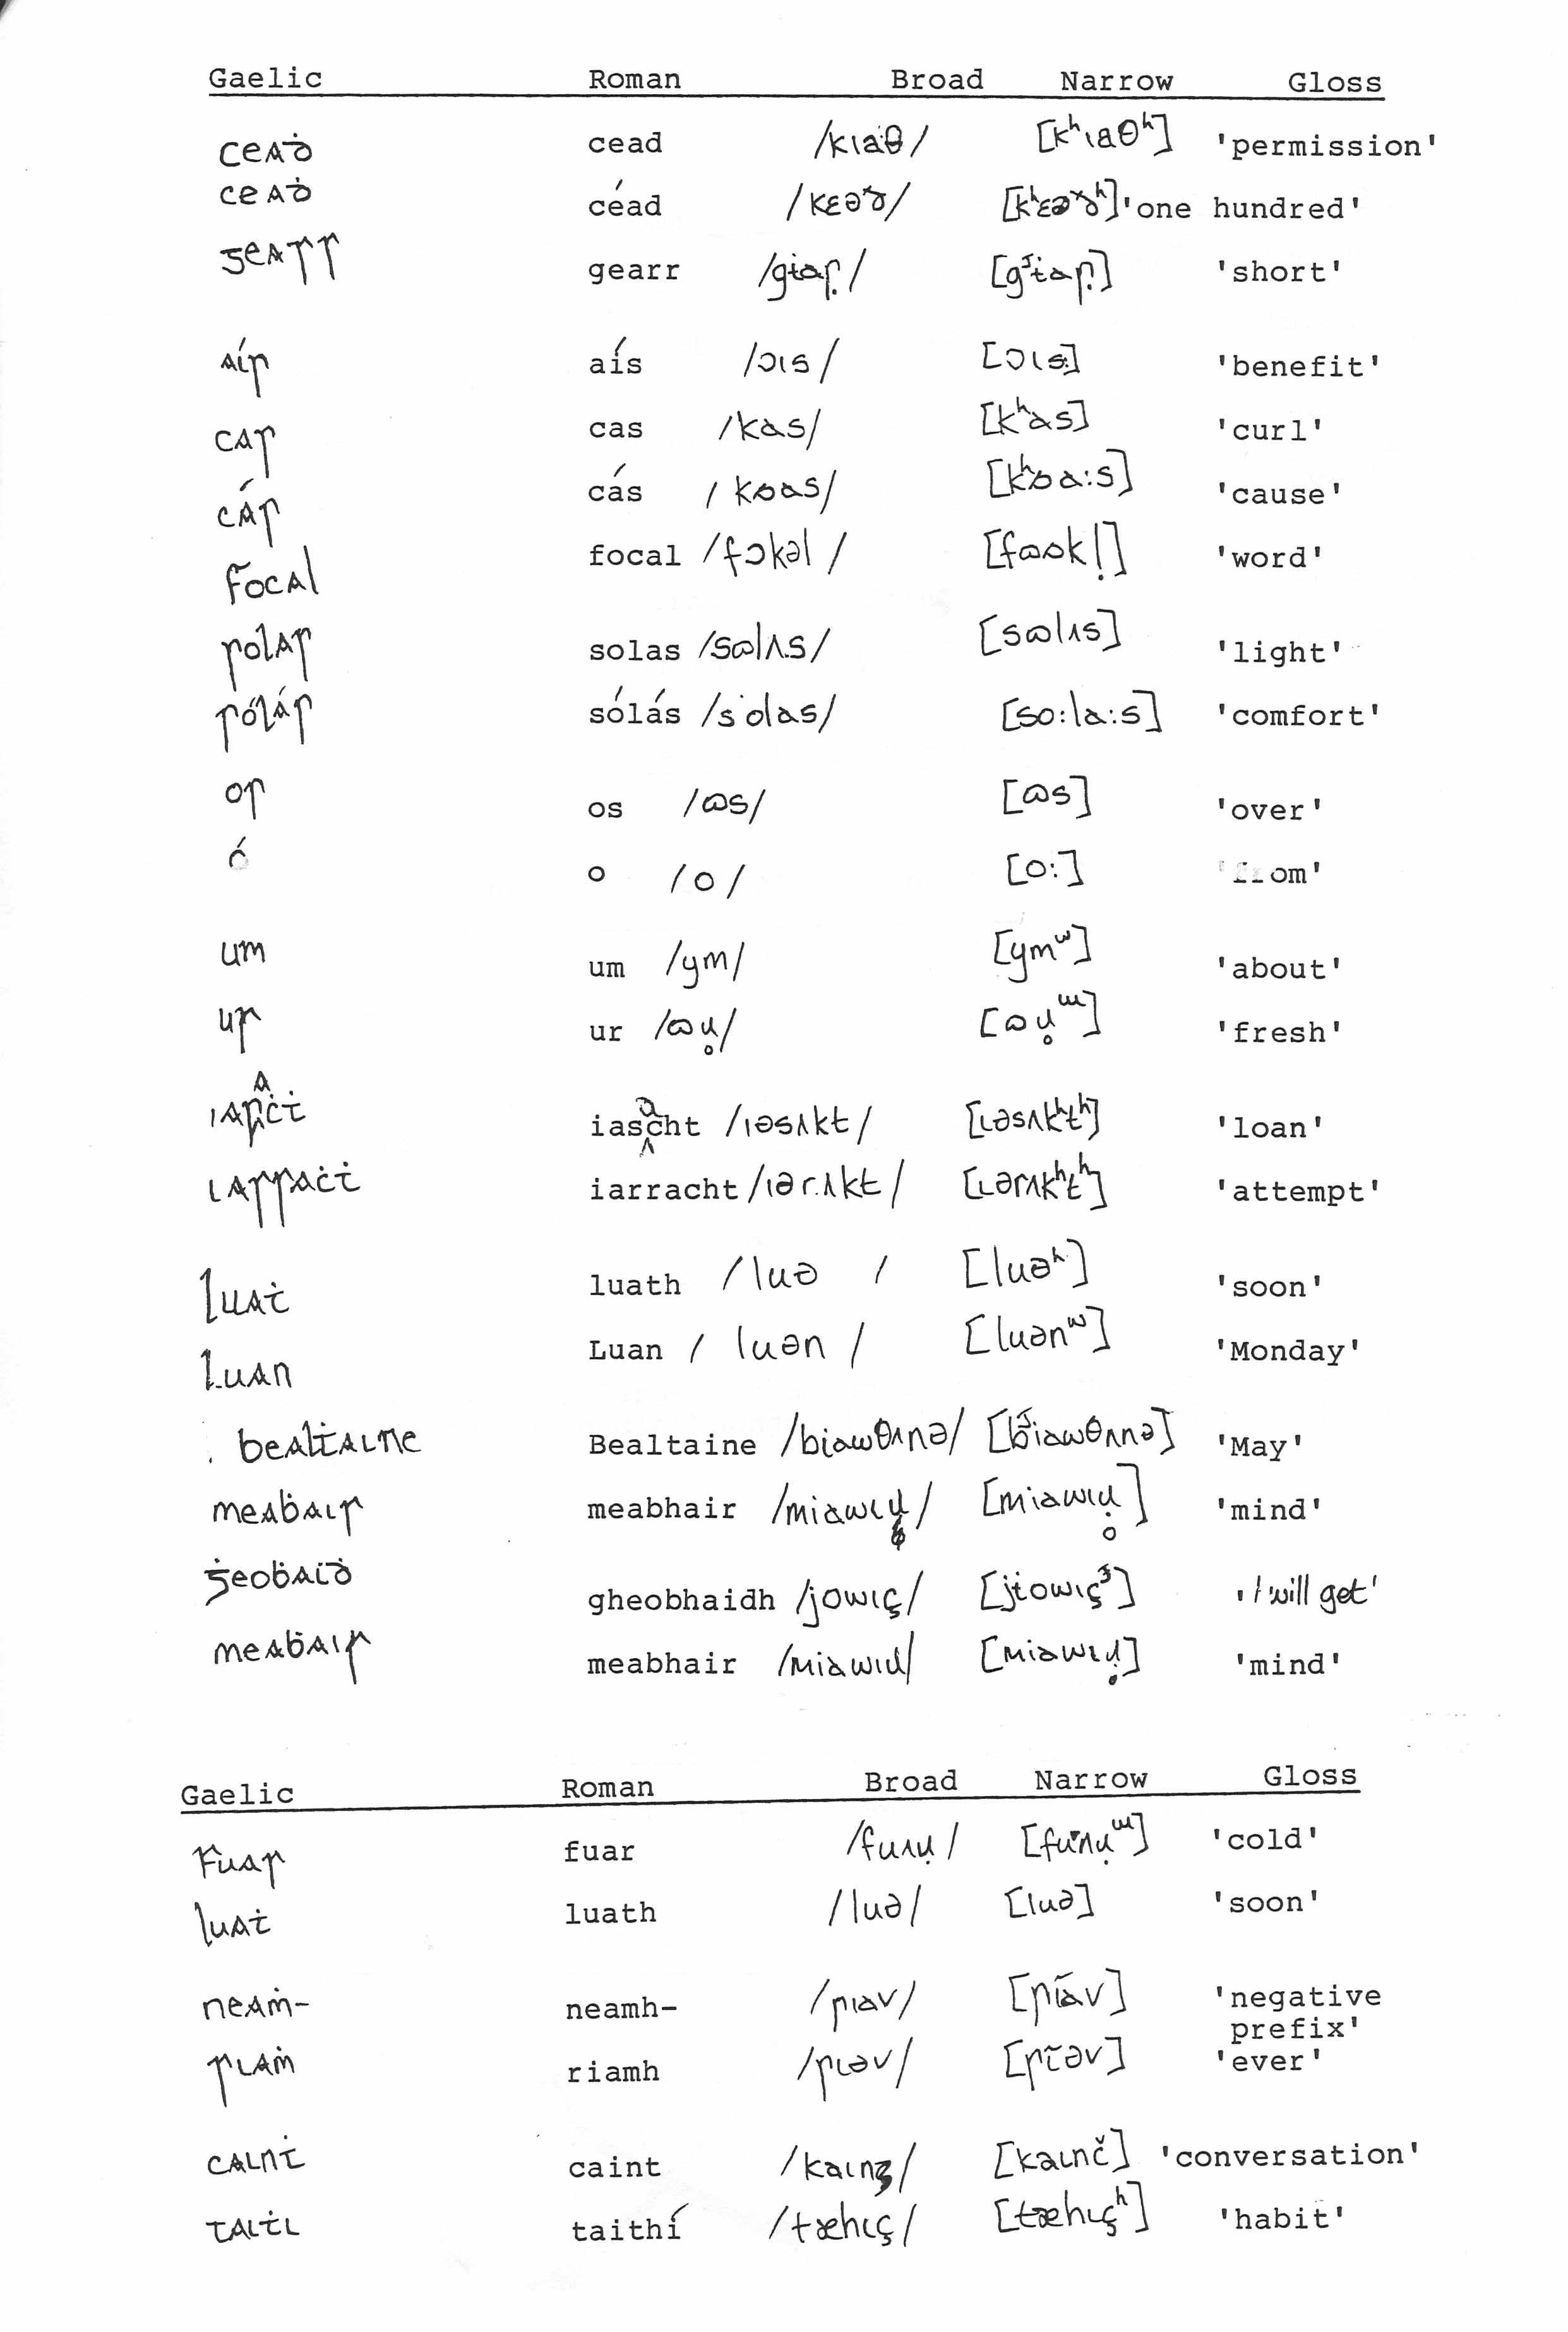 Gaelic Roman Broad Narrow Gloss
ceaḋ cead /kıaθ/ [kʰıaθʰ] 'permission'
ceaḋ céad /kɛəɤ/ [kʰɛəɤʰ] 'one hundred'
gearr gearr 'short'
aís aís /ɔıs/ [ɔıs] 'benefit'
cas cas /kas/ [kʰas] 'curl'
cás cás [kʰɒa:s] 'cause'
focal focal /fɔkəl/ 'word'
solas solas /sɷlʌs/ [sɷlʌs] 'light'
sólás sólás /solas/ [so:la:s] 'comfort'
os os /ɷs/ [ɷs] 'over'
ó o /o/ [o:] 'from'
um um /ym/ [ymʷ] 'about'
ur ur 'fresh'
iasaċṫ iasacht /ıəsʌkt/ [ɩəsʌkʰtʰ] 'loan'
iarraċṫ iarracht /ıər.ʌkt/ [ɩərʌkʰtʰ] 'attempt'
luaṫ luath /luə / [luəʰ] 'soon'
Luan Luan / luən / [luənʷ] 'Monday'
bealṫaine Bealtaine /biawθʌnə/ 'May'
meaḃair meabhair 'mind'
ġeoḃaiḋ gheobhaidh /jowıç/ 'I will get'
meaḃair meabhair 'mind'
Gaelic Roman Broad Narrow Gloss
fuar fuar 'cold'
luaṫ luath /luə/ [luə] 'soon'
neaṁ- neamh- /ɲıav/ 'negative
prefix'
riaṁ riamh 'ever'
cainṫ caint [kaɩnč] 'conversation'
taiṫi taithí /tæhɩç/ [tæhɩçʰ] 'habit'